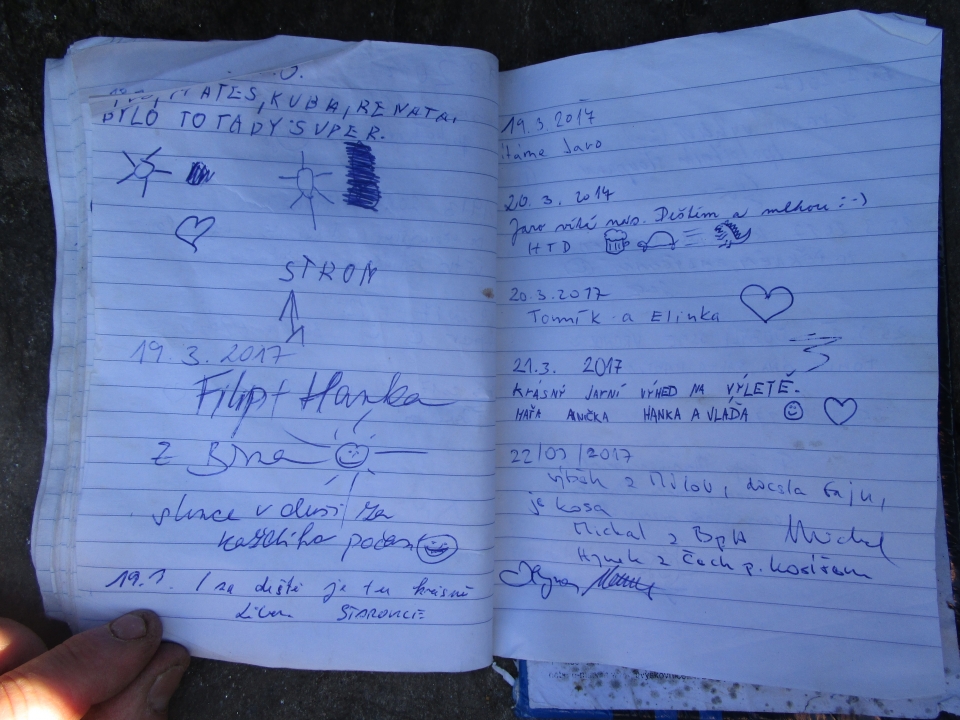 MATES, KUBA, RENATA,
BYLO TO TADY SUPER.
STROM
19.3.2017
Filip + Hanka
z Brna
slunce v duši za
každého počasí
19.3. I za deště je tu krásně
STAROVICE
19.3.2017
Vítáme Jaro
20.3.2017
Jaro vítá nás. Deštěm a mlhou :-)
HTD
20.3.2017
Tomík a Elinka
21.3. 2017
KRÁSNÝ JARNÍ VÝHED NA VÝLETĚ.
HANKA A VLAĎA
22/03/2017
výběh z Mikulova, docela fajn,
je kosa
Michal z BpH
Hynek z Čech p. Kosířem